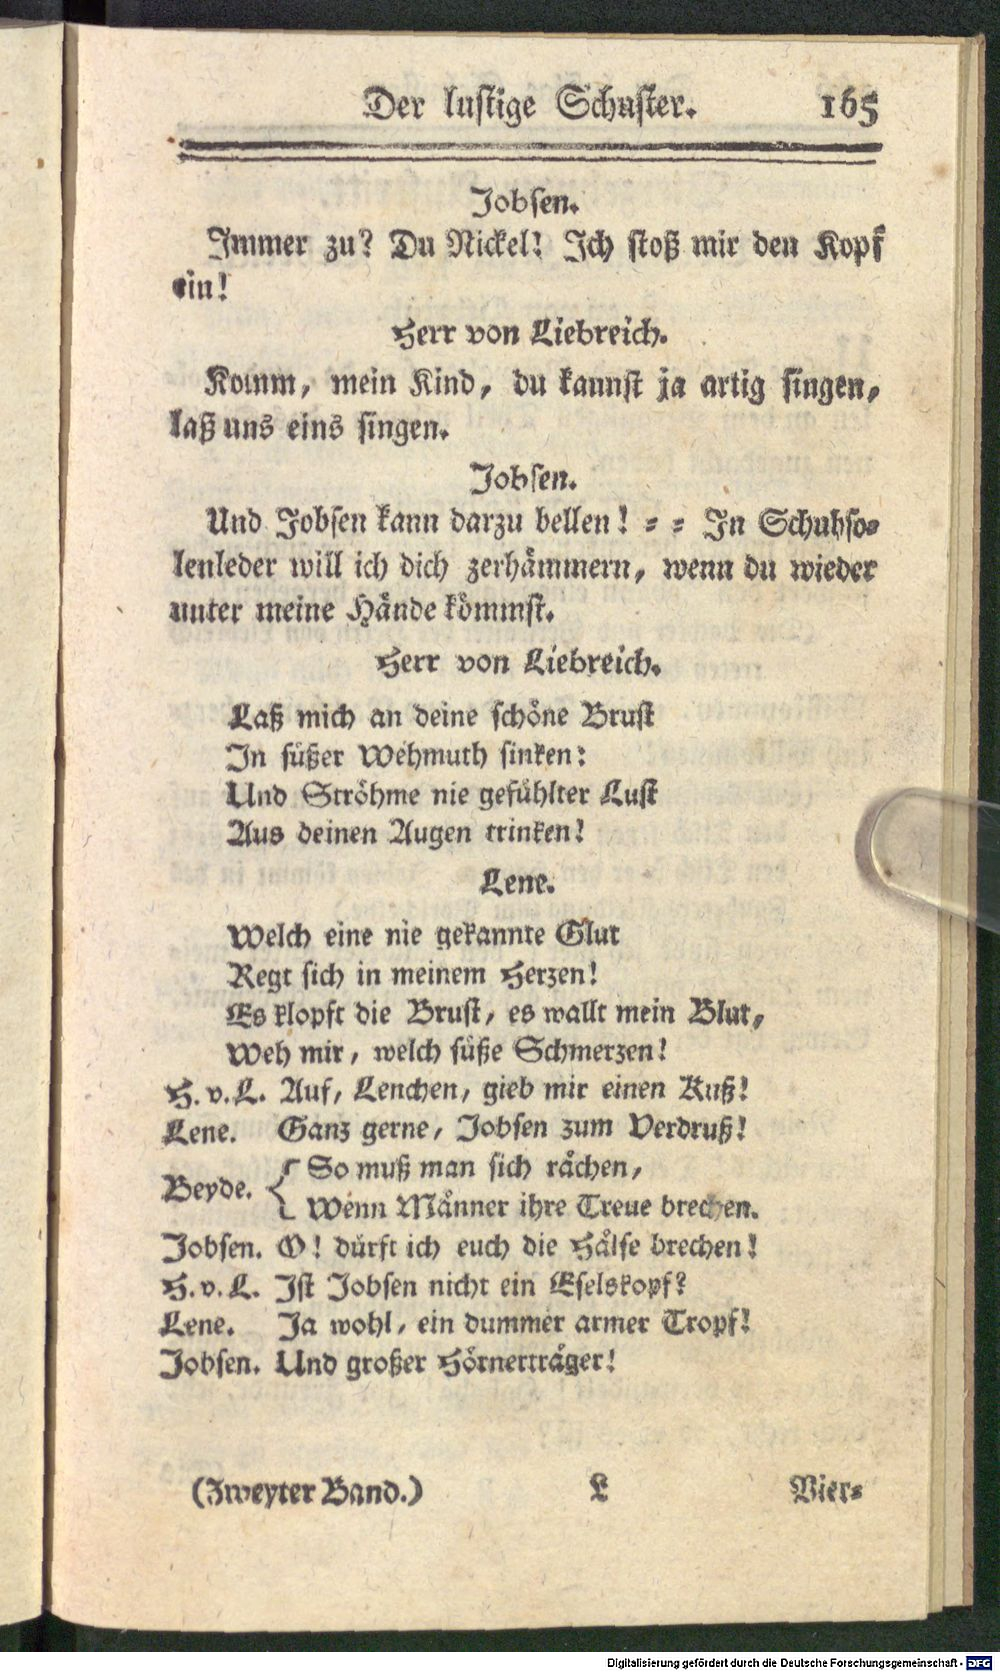 Der lustige Schuster. 165
Jobsen.
Immer zu? Du Nickel! Ich stoß mir den Kopf
ein!
Herr von Liebreich.
Komm, mein Kind, du kannst ja artig singen,
laß uns eins singen.
Jobsen.
Und Jobsen kann darzu bellen! = = In Schuhso=
lenleder will ich dich zerhämmern, wenn du wieder
unter meine Hände kömmst.
Herr von Liebreich.
Laß mich an deine schöne Brust
In süßer Wehmuth sinken:
Und Ströhme nie gefühlter Lust
Aus deinen Augen trinken!
Lene.
Welch eine nie gekannte Glut
Regt sich in meinem Herzen!
Es klopft die Brust, es wallt mein Blut,
Weh mir, welch süße Schmerzen!
H. v. L. Auf, Lenchen, gieb mir einen Kuß!
Lene. Ganz gerne, Jobsen zum Verdruß!
Beyde. { So muß man sich rächen,
Wenn Männer ihre Treue brechen.
Jobsen. O! dürft ich euch die Hälse brechen!
H. v. L. Ist Jobsen nicht ein Eselskopf?
Lene. Ja wohl, ein dummer armer Tropf!
Jobsen. Und großer Hörnerträger!
(Zweyter Band.) L Vier=
Digitalisierung gefördert durch die Deutsche Forschungsgemeinschaft - DFG